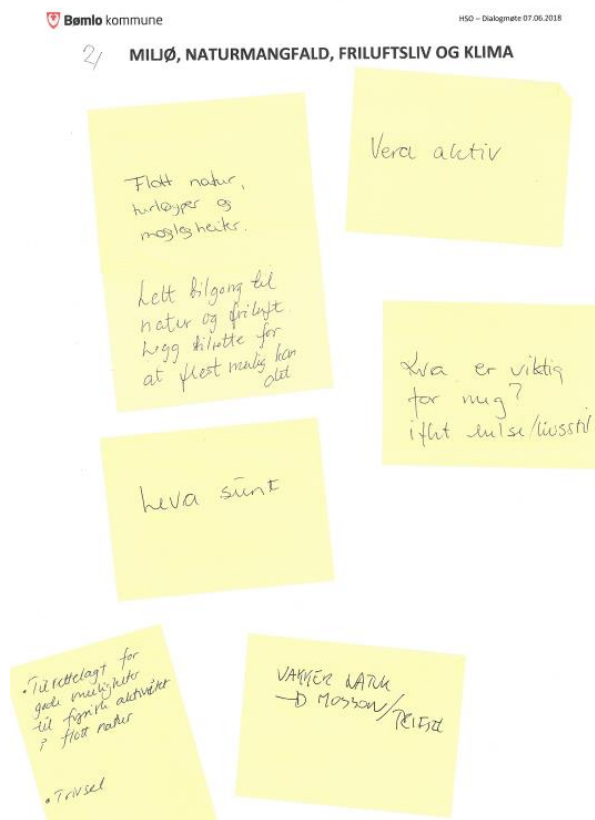 Bømlo kommune
HSO – Dialogmøte 07.06.2018
2/
MILJØ, NATURMANGFALD, FRILUFTSLIV OG KLIMA
Flott natur,
turløyper og
moglegheiter.
Lett tilgang til
natur og friluft.
Legg tilrette for
at flest mulig kan
det
Vera aktiv
Kva er viktig
for meg?
ifht helse/livsstil
Leva sunt
• Tilrettelagt for
gode muligheter
til fysisk aktivitet
i flott natur
• Trivsel
VAKKER NATUR
→ MOSJON/